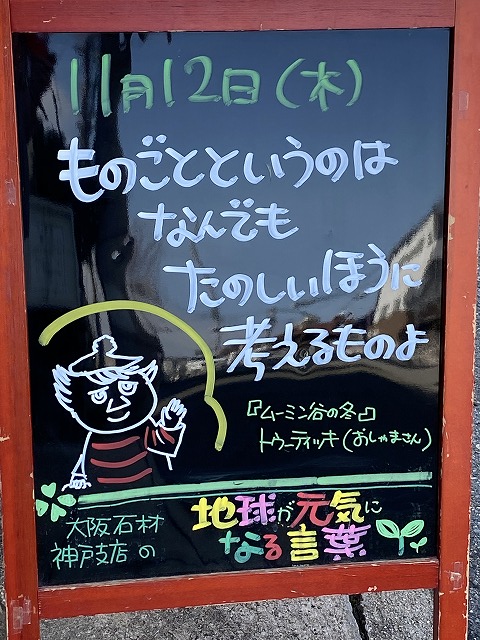 11月12日(木)
ものごとというのは
なんでも
たのしいほうに
考えるものよ
『ムーミン谷の冬』
トゥーティッキ(おしゃまさん)
大阪石材
神戸支店の
地球が元気に
なる言葉